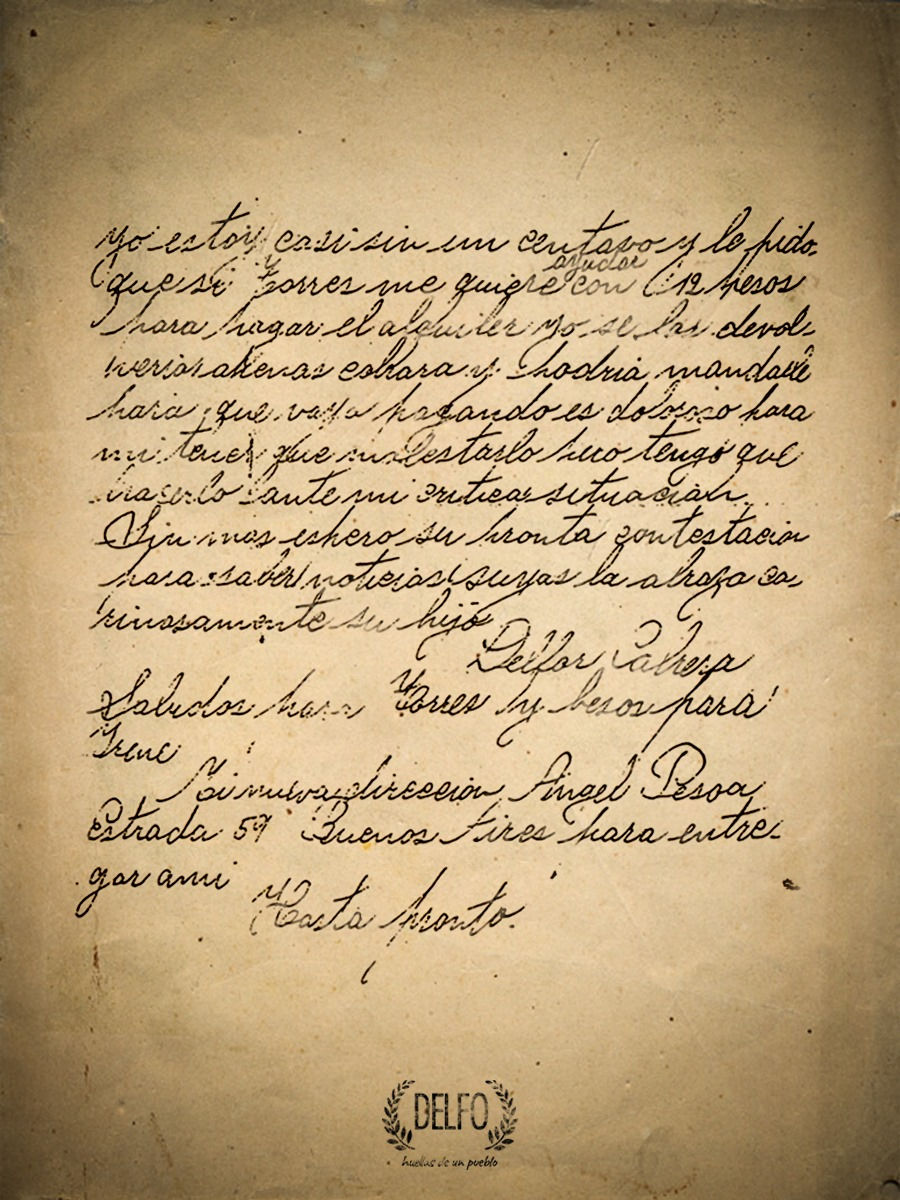 yo estoy casi sin un centavo y le pido
que si Torres me quiere ayudar con 12 pesos
para pagar el alquiler yo se los devol-
veria apenas cobrara y podria mandarle
para que vaya pagando es doloroso para
mi tener que molestarlo pero tengo que
hacerlo ante mi critica situacion.
Sin mas espero su pronta contestacion
para saber noticias suyas la abraza ca-
rinosamente su hijo
Delfor Cabrera
Saludos para Torres y besos para
Irene
Mi nueva direccion Angel Pesoa
Estrada 59 Buenos Aires para entre-
gar a mi
Hasta pronto.
DELFO
huellas de un pueblo